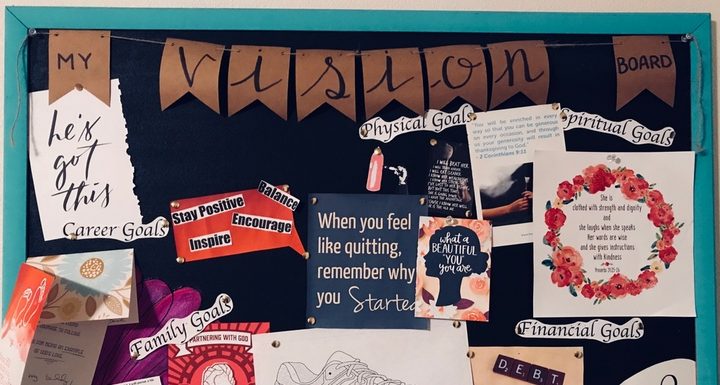 MY vision BOARD
he's
got
this
Career Goals
Physical Goals
Spiritual Goals
"You will be enriched in every
way so that you can be generous
on every occasion, and through
us your generosity will result in
thanksgiving to God."
- 2 Corinthians 9:11
She is
clothed with strength and dignity
and
she laughs when she speaks
Her words are wise
and she gives instructions
with Kindness
Proverbs 31:25-26
Balance
Stay Positive
Encourage
Inspire
When you feel
like quitting,
remember why
you Started
what a
BEAUTIFUL
"YOU"
you are
Family Goals
PARTNERING WITH GOD
Financial Goals
DEBT